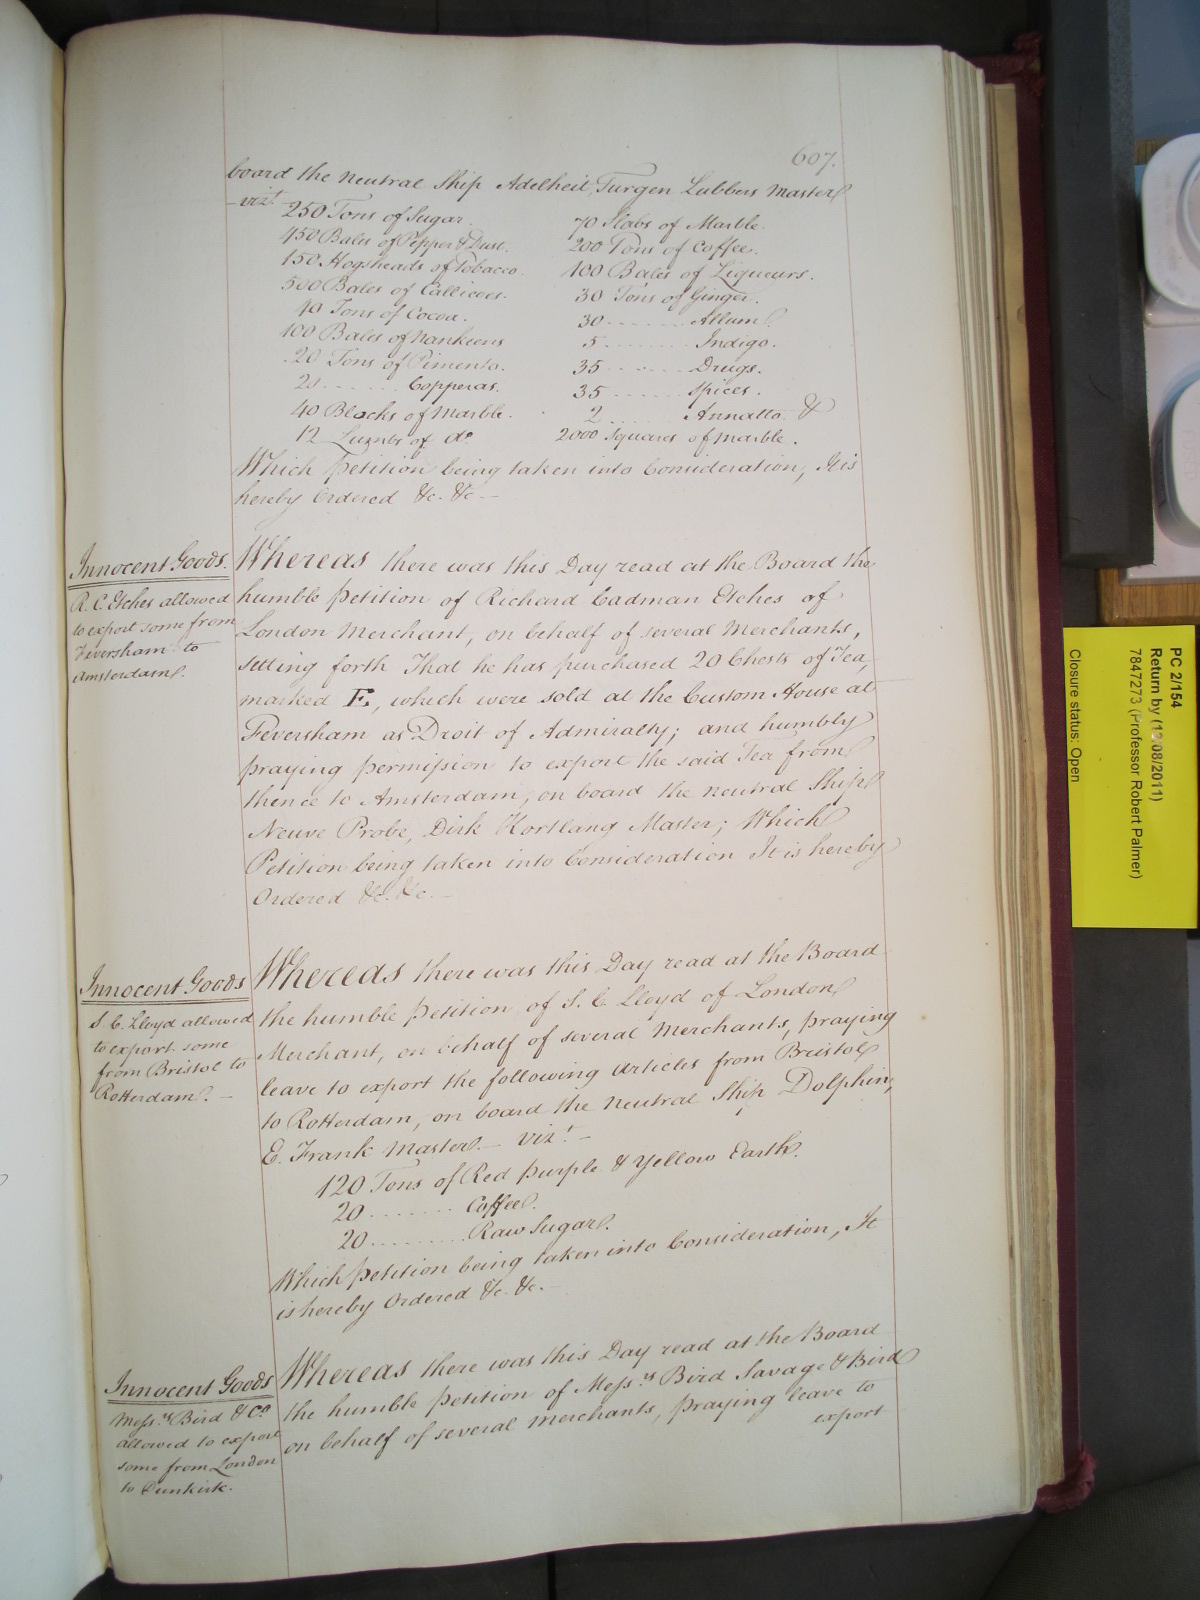 607.
board the neutral Ship Adelheit, Turgen Lubbers Master
vizt.
250 Tons of Sugar.
450 Bales of Pepper & Dust.
150 Hogsheads of Tobacco.
500 Bales of Callicoes.
40 Tons of Cocoa.
100 Bales of Nankeens
20 Tons of Pimento.
20 ...... Copperas.
40 Blocks of Marble.
12 of do.
70 Slabs of Marble.
200 Tons of Coffee.
100 Bales of Liqueurs.
30 Tons of Ginger.
30 ....... Allum
5 ........ Indigo.
35 ....... Drugs.
35 ...... Spices.
2 ....... Annatto &
2000 Squares of Marble.
Which Petition being taken into Consideration, It is
hereby Ordered &c. &c.—
Innocent Goods.
R. C. Etches allowed
to export some from
Feversham to
Amsterdam.
Whereas there was this Day read at the Board the
humble Petition of Richard Cadman Etches of
London Merchant, on behalf of several Merchants,
setting forth That he has purchased 20 Chests of Tea,
marked E, which were sold at the Custom House at
Feversham as Droit of Admiralty; and humbly
praying permission to export the said Tea from
thence to Amsterdam, on board the neutral Ship
Neuve Probe, Dirk Kortlang Master; Which
Petition being taken into Consideration It is hereby
Ordered &c. &c.—
Innocent Goods
S. C. Lloyd allowed
to export some
from Bristol to
Rotterdam.—
Whereas there was this Day read at the Board
the humble Petition of S. C. Lloyd of London
Merchant, on behalf of several Merchants, praying
leave to export the following Articles from Bristol
to Rotterdam, on board the neutral Ship Dolphin,
E. Frank Master.— vizt.—
120 Tons of Red Purple & Yellow Earth.
20 ........ Coffee.
20 ......... Raw Sugar.
Which Petition being taken into Consideration, It
is hereby Ordered &c. &c.—
Innocent Goods
Messrs. Bird & Co.
allowed to export
some from London
to Dunkirk.
Whereas there was this Day read at the Board
the humble Petition of Messrs. Bird Savage & Bird
on behalf of several Merchants, praying leave to
export
PC 2/154
Return by (12/08/2011)
7847273 (Professor Robert Palmer)
Closure status: Open